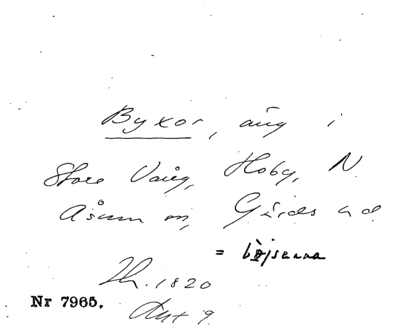 Byxor, äng i
Store Vång, Hoby, N.
Åsum sn, Gärds hd
= bọjsenna
Lh. 1820
Akt 9
Nr 7965.